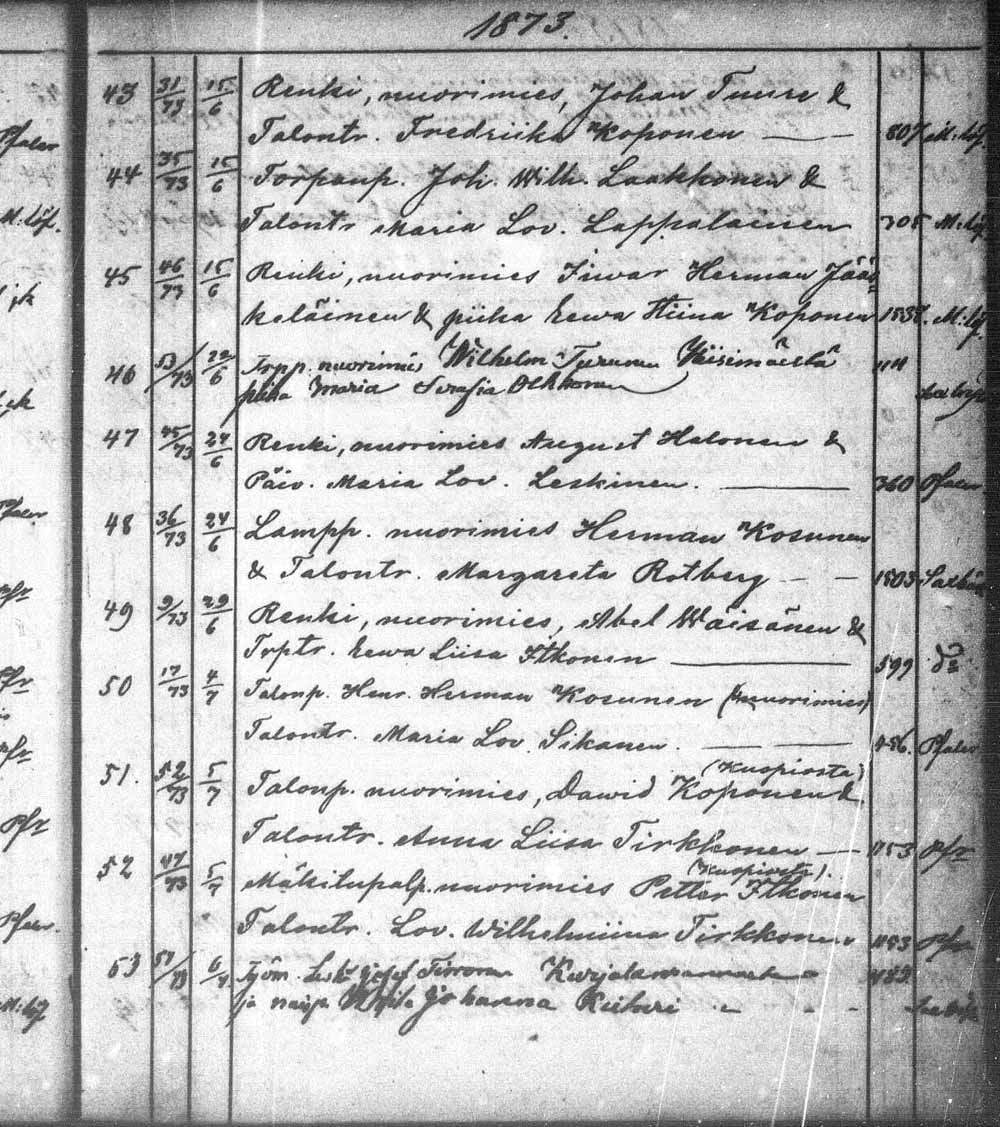 1873.
43 31/73 15/6 Renki, nuorimies, Johan Tuure &
Talontr. Fredriika Koponen — 807 M:löf.
44 35/73 15/6 Torpanp. Joh. Wilh. Laakkonen &
Talontr Maria Lov. Lappalainen 305 M:löf
45 46/73 15/6 Renki, nuorimies Iiwar Herman Jääs-
keläinen & piika Eewa Stiina Koponen 1538. M:löf.
46 53/73 22/6 nuorimies Wilhelm Turunen
piika Maria Serafia
47 45/73 24/6 Renki, nuorimies August Halonen &
Päiv. Maria Lov. Leskinen. — 360 Pfaler
48 36/73 24/6 Lampp. nuorimies Herman Kosunen
& Talontr. Margareta Rotberg — — 1803
49 9/73 29/6 Renki, nuorimies, Abel Wäisänen &
Trptr. Eewa Liisa Itkonen — 599 do
50 17/73 4/7 Talonp. Henr. Herman Kosunen (nuorimies)
Talontr. Maria Lov. Sikanen. — — 456. Pfaler
51. 52/73 5/7 Talonp. nuorimies, Dawid Koponen (Kuopiosta) &
Talontr. Anna Liisa Tirkkonen — 1153 Pfr
52 47/73 5/7 Mäkitupalp. nuorimies Petter Itkonen (Kuopiosta).
Talontr. Lov. Wilhelmiina Tirkkonen 1153 Pfr
53 51/73 6/7 Työm. Josef
ja Johanna